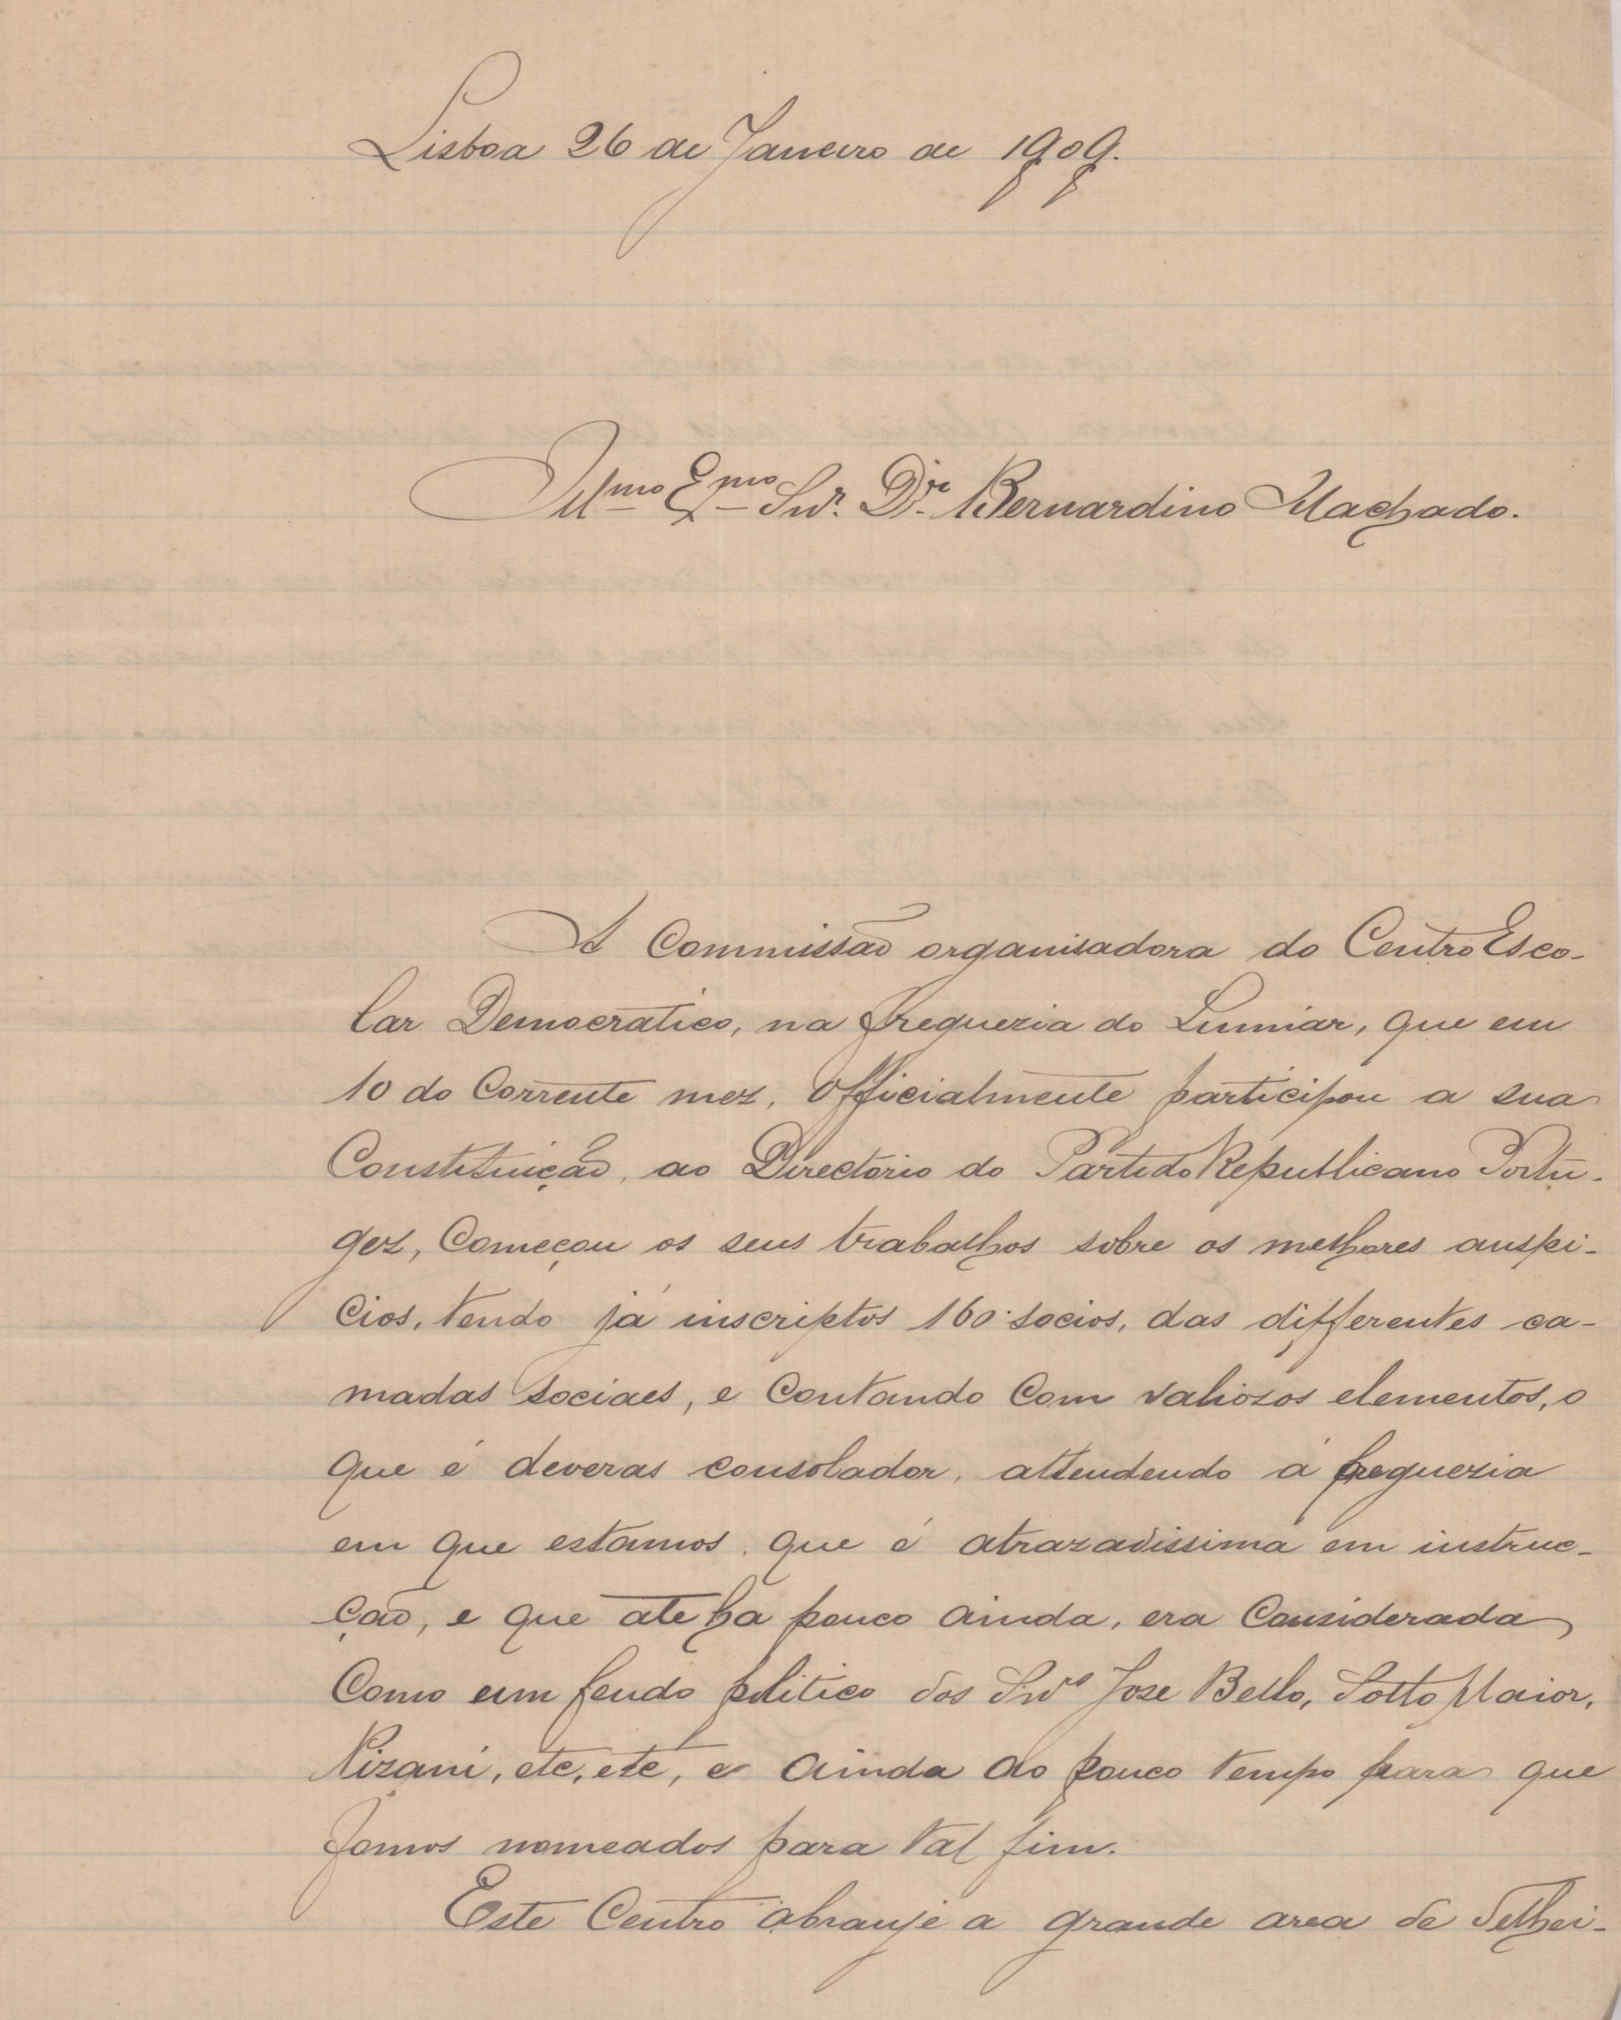 Lisboa 26 de Janeiro de 1909.
Illmo Exmo Snr. Dr. Bernardino Machado.
A Commissão organisadora do Centro Esco-
lar Democratico, na freguezia do Lumiar, que em
10 do Corrente mez, officialmente participou a sua
Constituição, ao Directorio do Partido Republicano Portu-
gez, Começou os seus trabalhos sobre os melhores auspi-
cios, tendo já inscriptos 160 socios, das differentes ca-
madas sociaes, e Contando Com valiozos elementos, o
que é deveras consolador, attendendo á freguezia
em que estamos, que é atrazadissima em instruc-
ção, e que até ha pouco ainda, era Considerada
Como um feudo politico dos Snrs Jose Bello, Sotto Maior,
Pizani, etc, etc, e ainda ao pouco tempo para que
fomos nomeados para tal fim.
Este Centro abranje a grande area de Telhei-